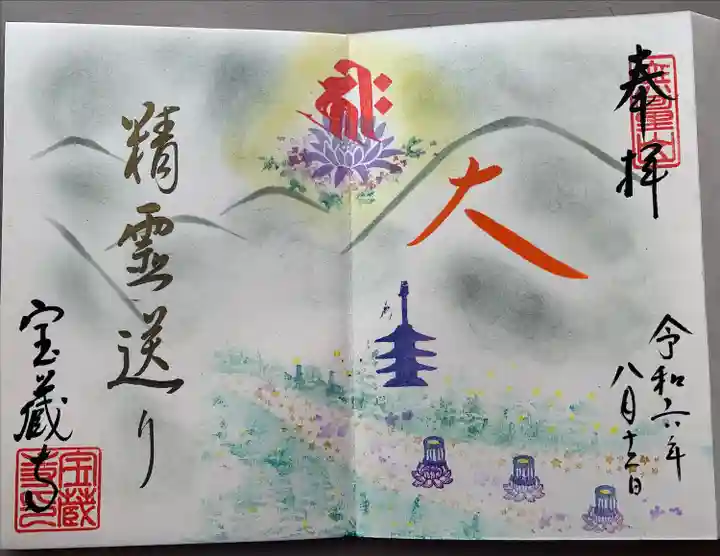 奉拝
大
令和六年
八月十三日
精霊送り
宝蔵寺